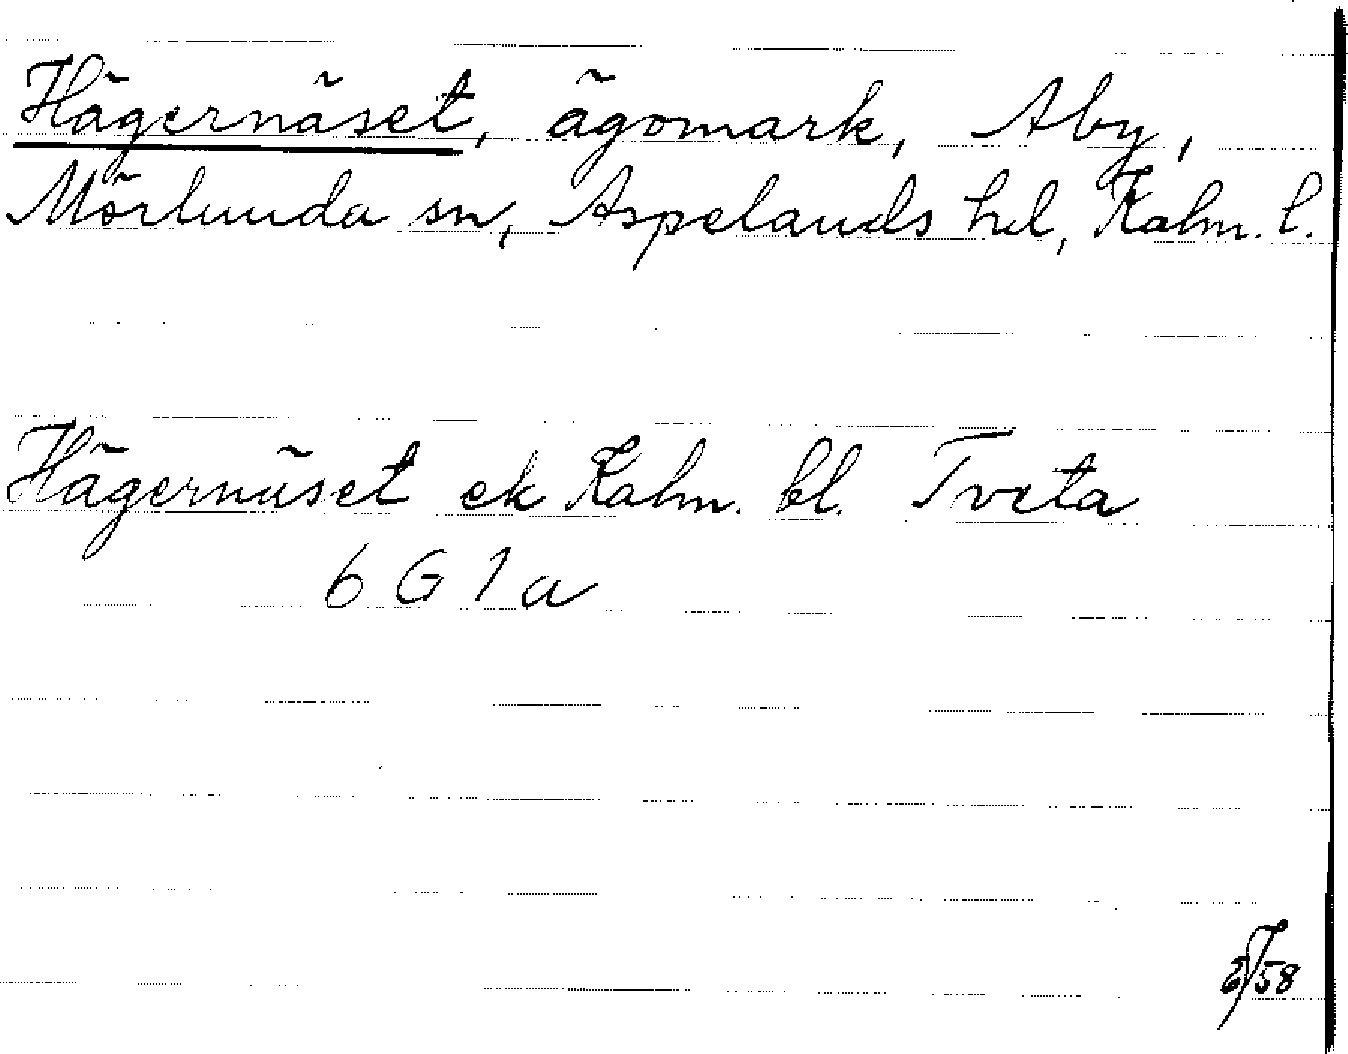 Hägernäset, ägomark, Aby,
Mörlunda sn, Aspelands hd, Kalm. l.
Hägernäset ek Kalm. bl. Tveta
6 G 1 a